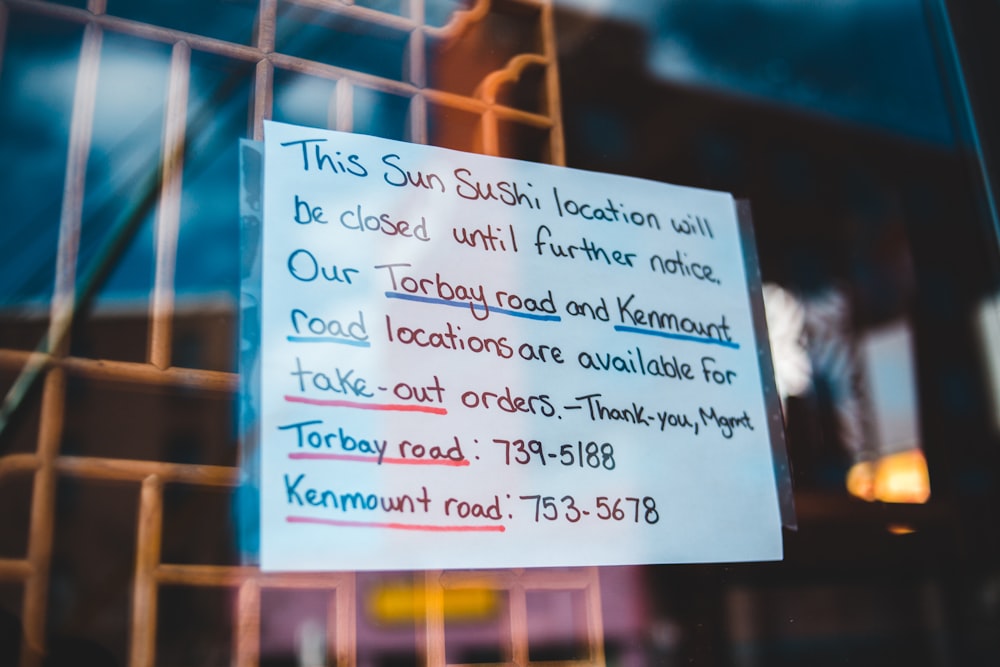 This Sun Sushi location will
be closed until further notice.
Our Torbay road and Kenmount
road locations are available for
take-out orders. - Thank-you, Mgmt
Torbay road: 739-5188
Kenmount road: 753-5678